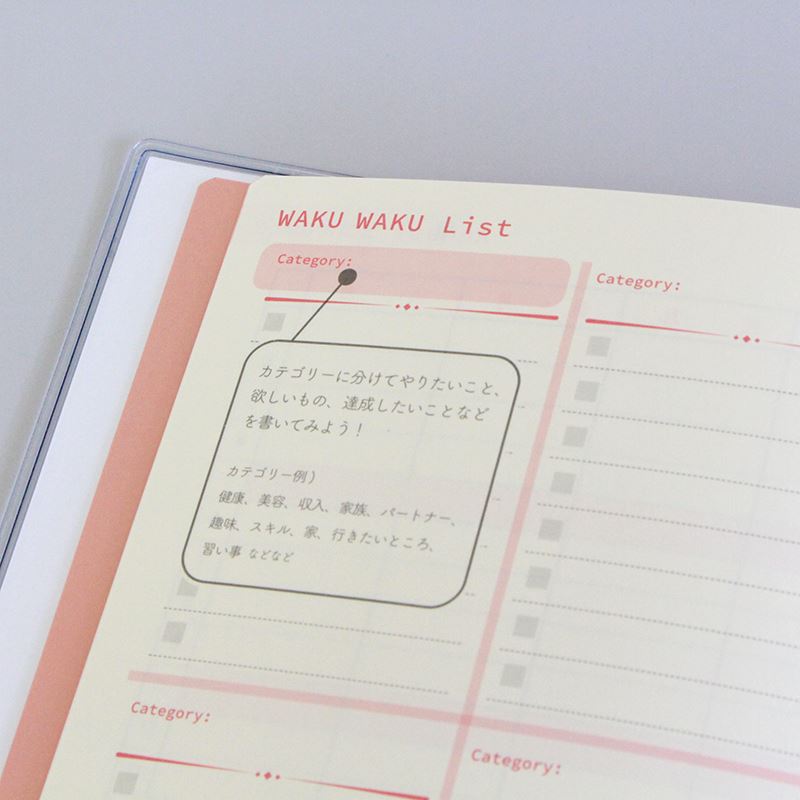 WAKU WAKU List
Category:
カテゴリーに分けてやりたいこと、
欲しいもの、達成したいことなど
を書いてみよう！
カテゴリー例）
健康、美容、収入、家族、パートナー、
趣味、スキル、家、行きたいところ、
習い事 などなど
Category:
Category:
Category: